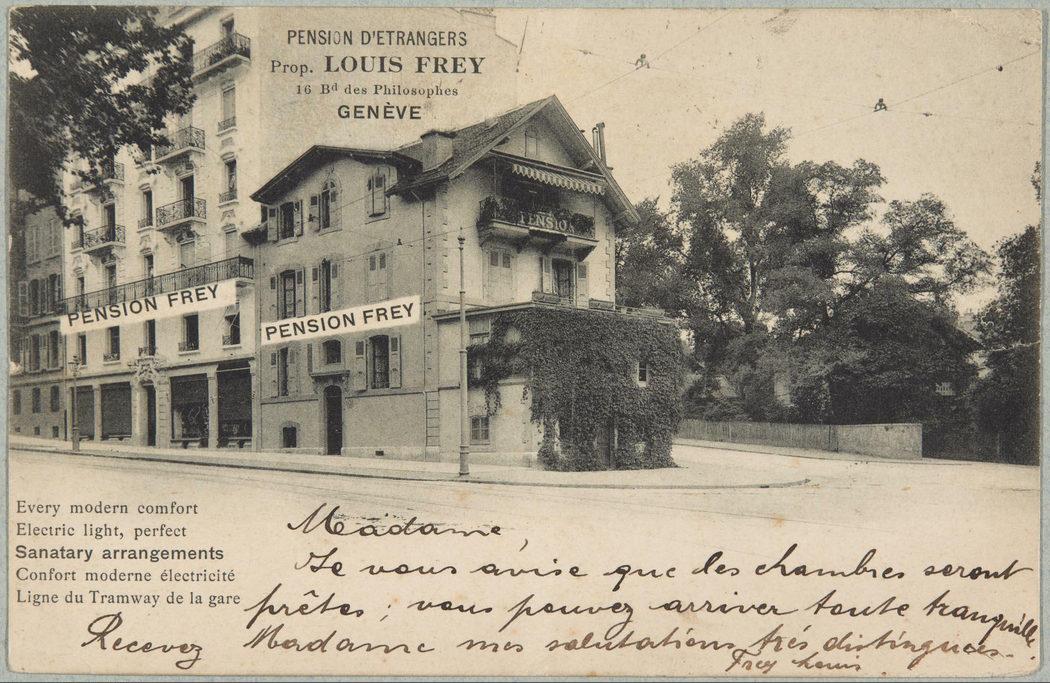 PENSION D'ETRANGERS
Prop. LOUIS FREY
16 Bd des Philosophes
GENÈVE
PENSION
PENSION FREY
PENSION FREY
Every modern comfort
Electric light, perfect
Sanatary arrangements
Confort moderne électricité
Ligne du Tramway de la gare
Madame,
Je vous avise que les chambres seront
prêtes; vous pouvez arriver toute tranquille.
Recevez Madame mes salutations très distinguées.
Frey Louis